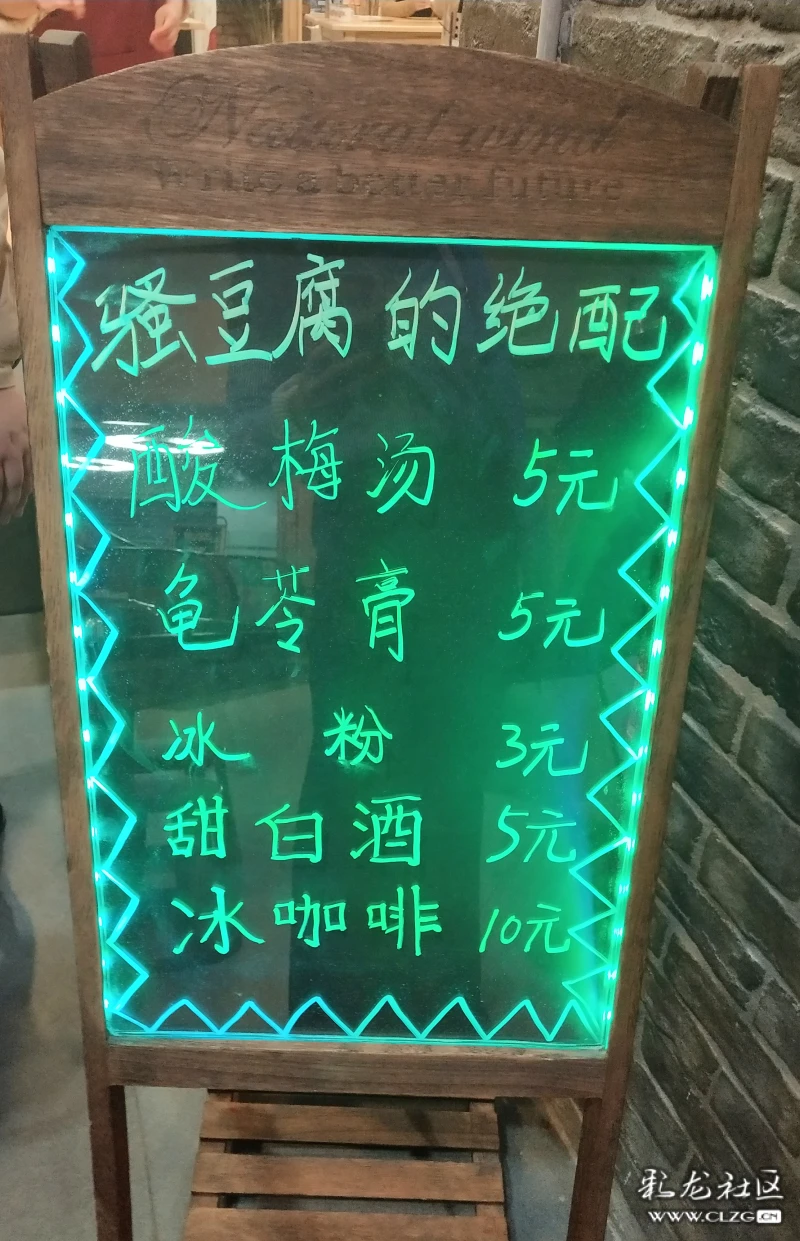 Natural wind
Write a better future
骚豆腐的绝配
酸梅汤 5元
龟苓膏 5元
冰粉 3元
甜白酒 5元
冰咖啡 10元
彩龙社区
WWW.CLZG.CN